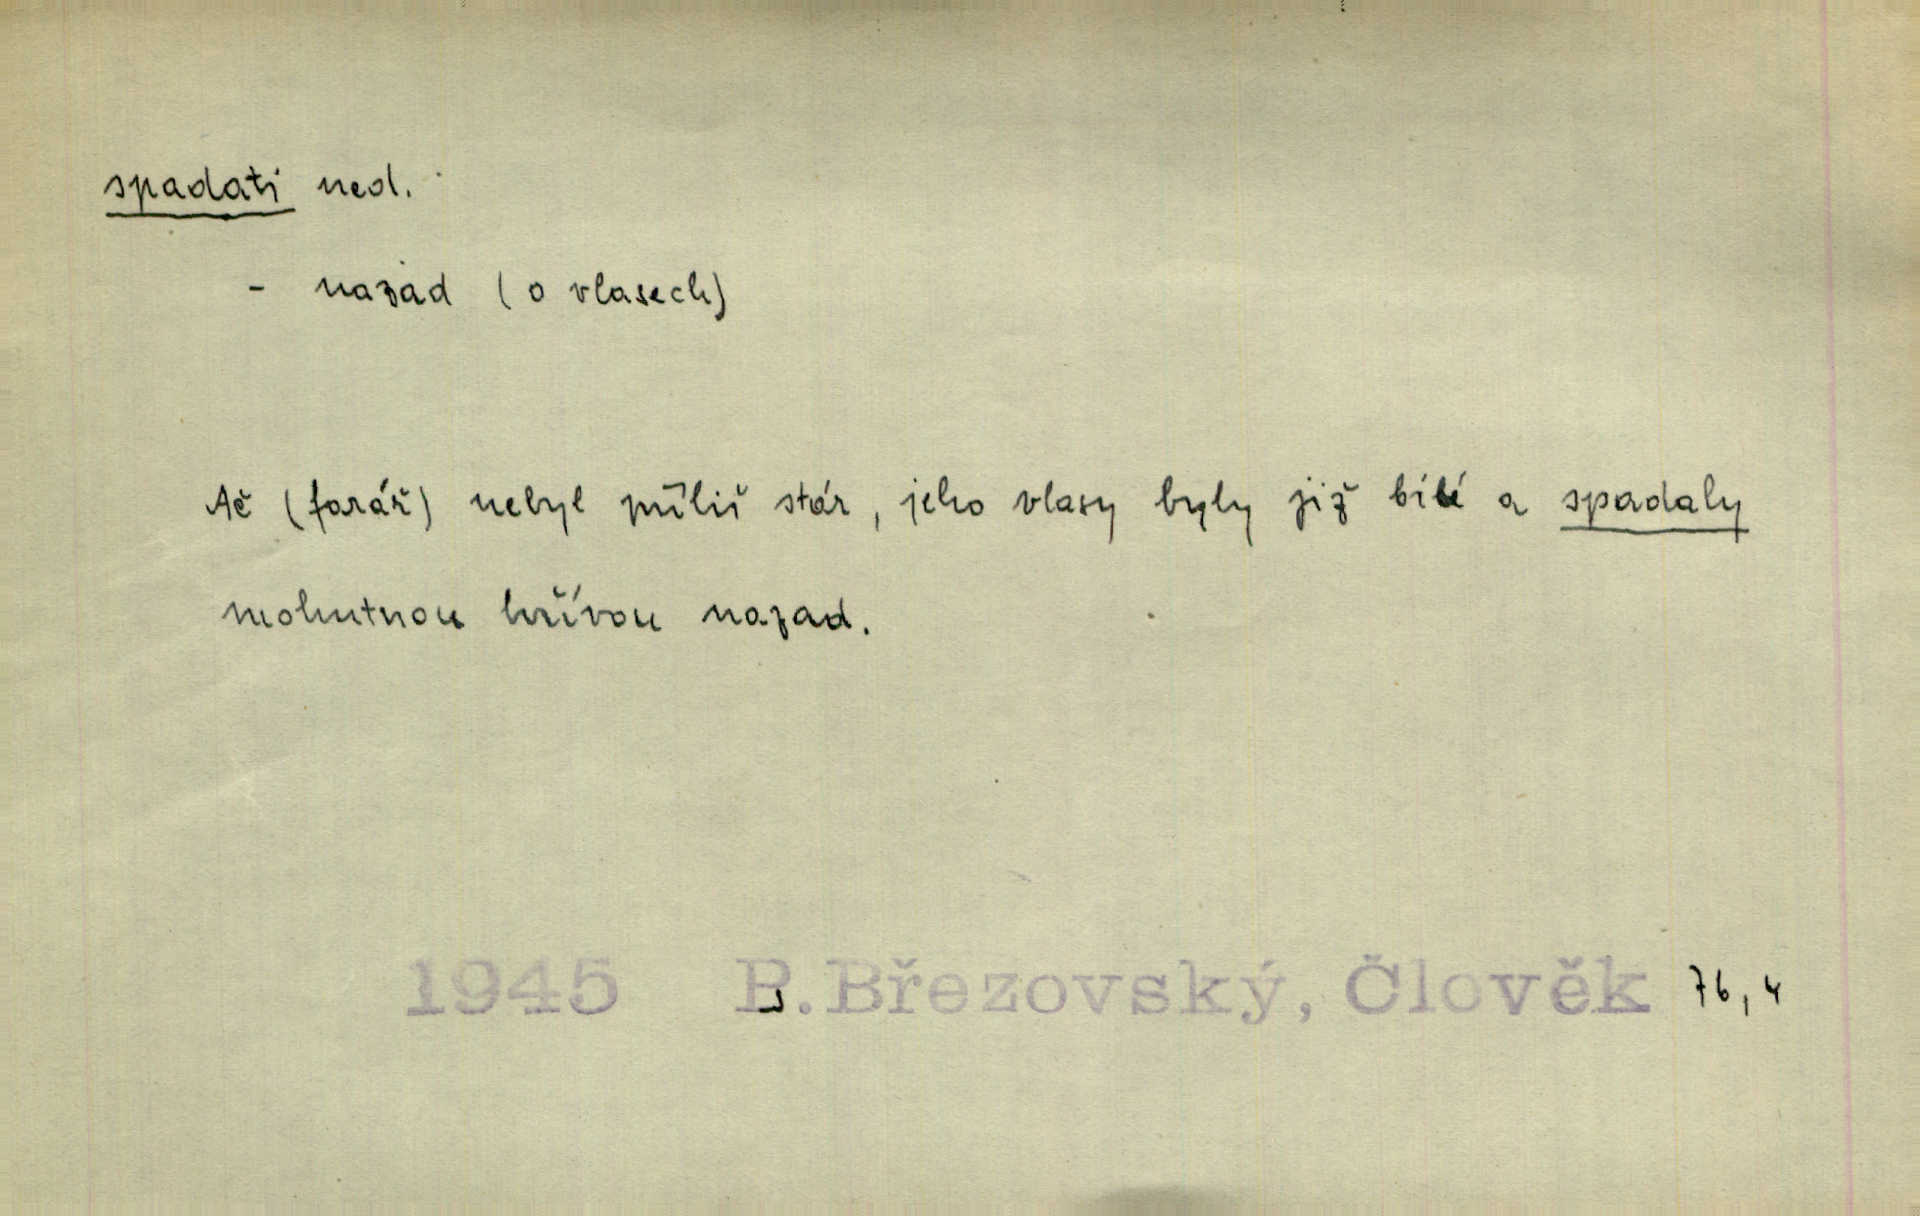 spadati ned.
- nazad (o vlasech)
Ač (farář) nebyl příliš stár, jeho vlasy byly již bílé a spadaly
mohutnou hřívou nazad.
1945 B.Březovský, Člověk 76,4